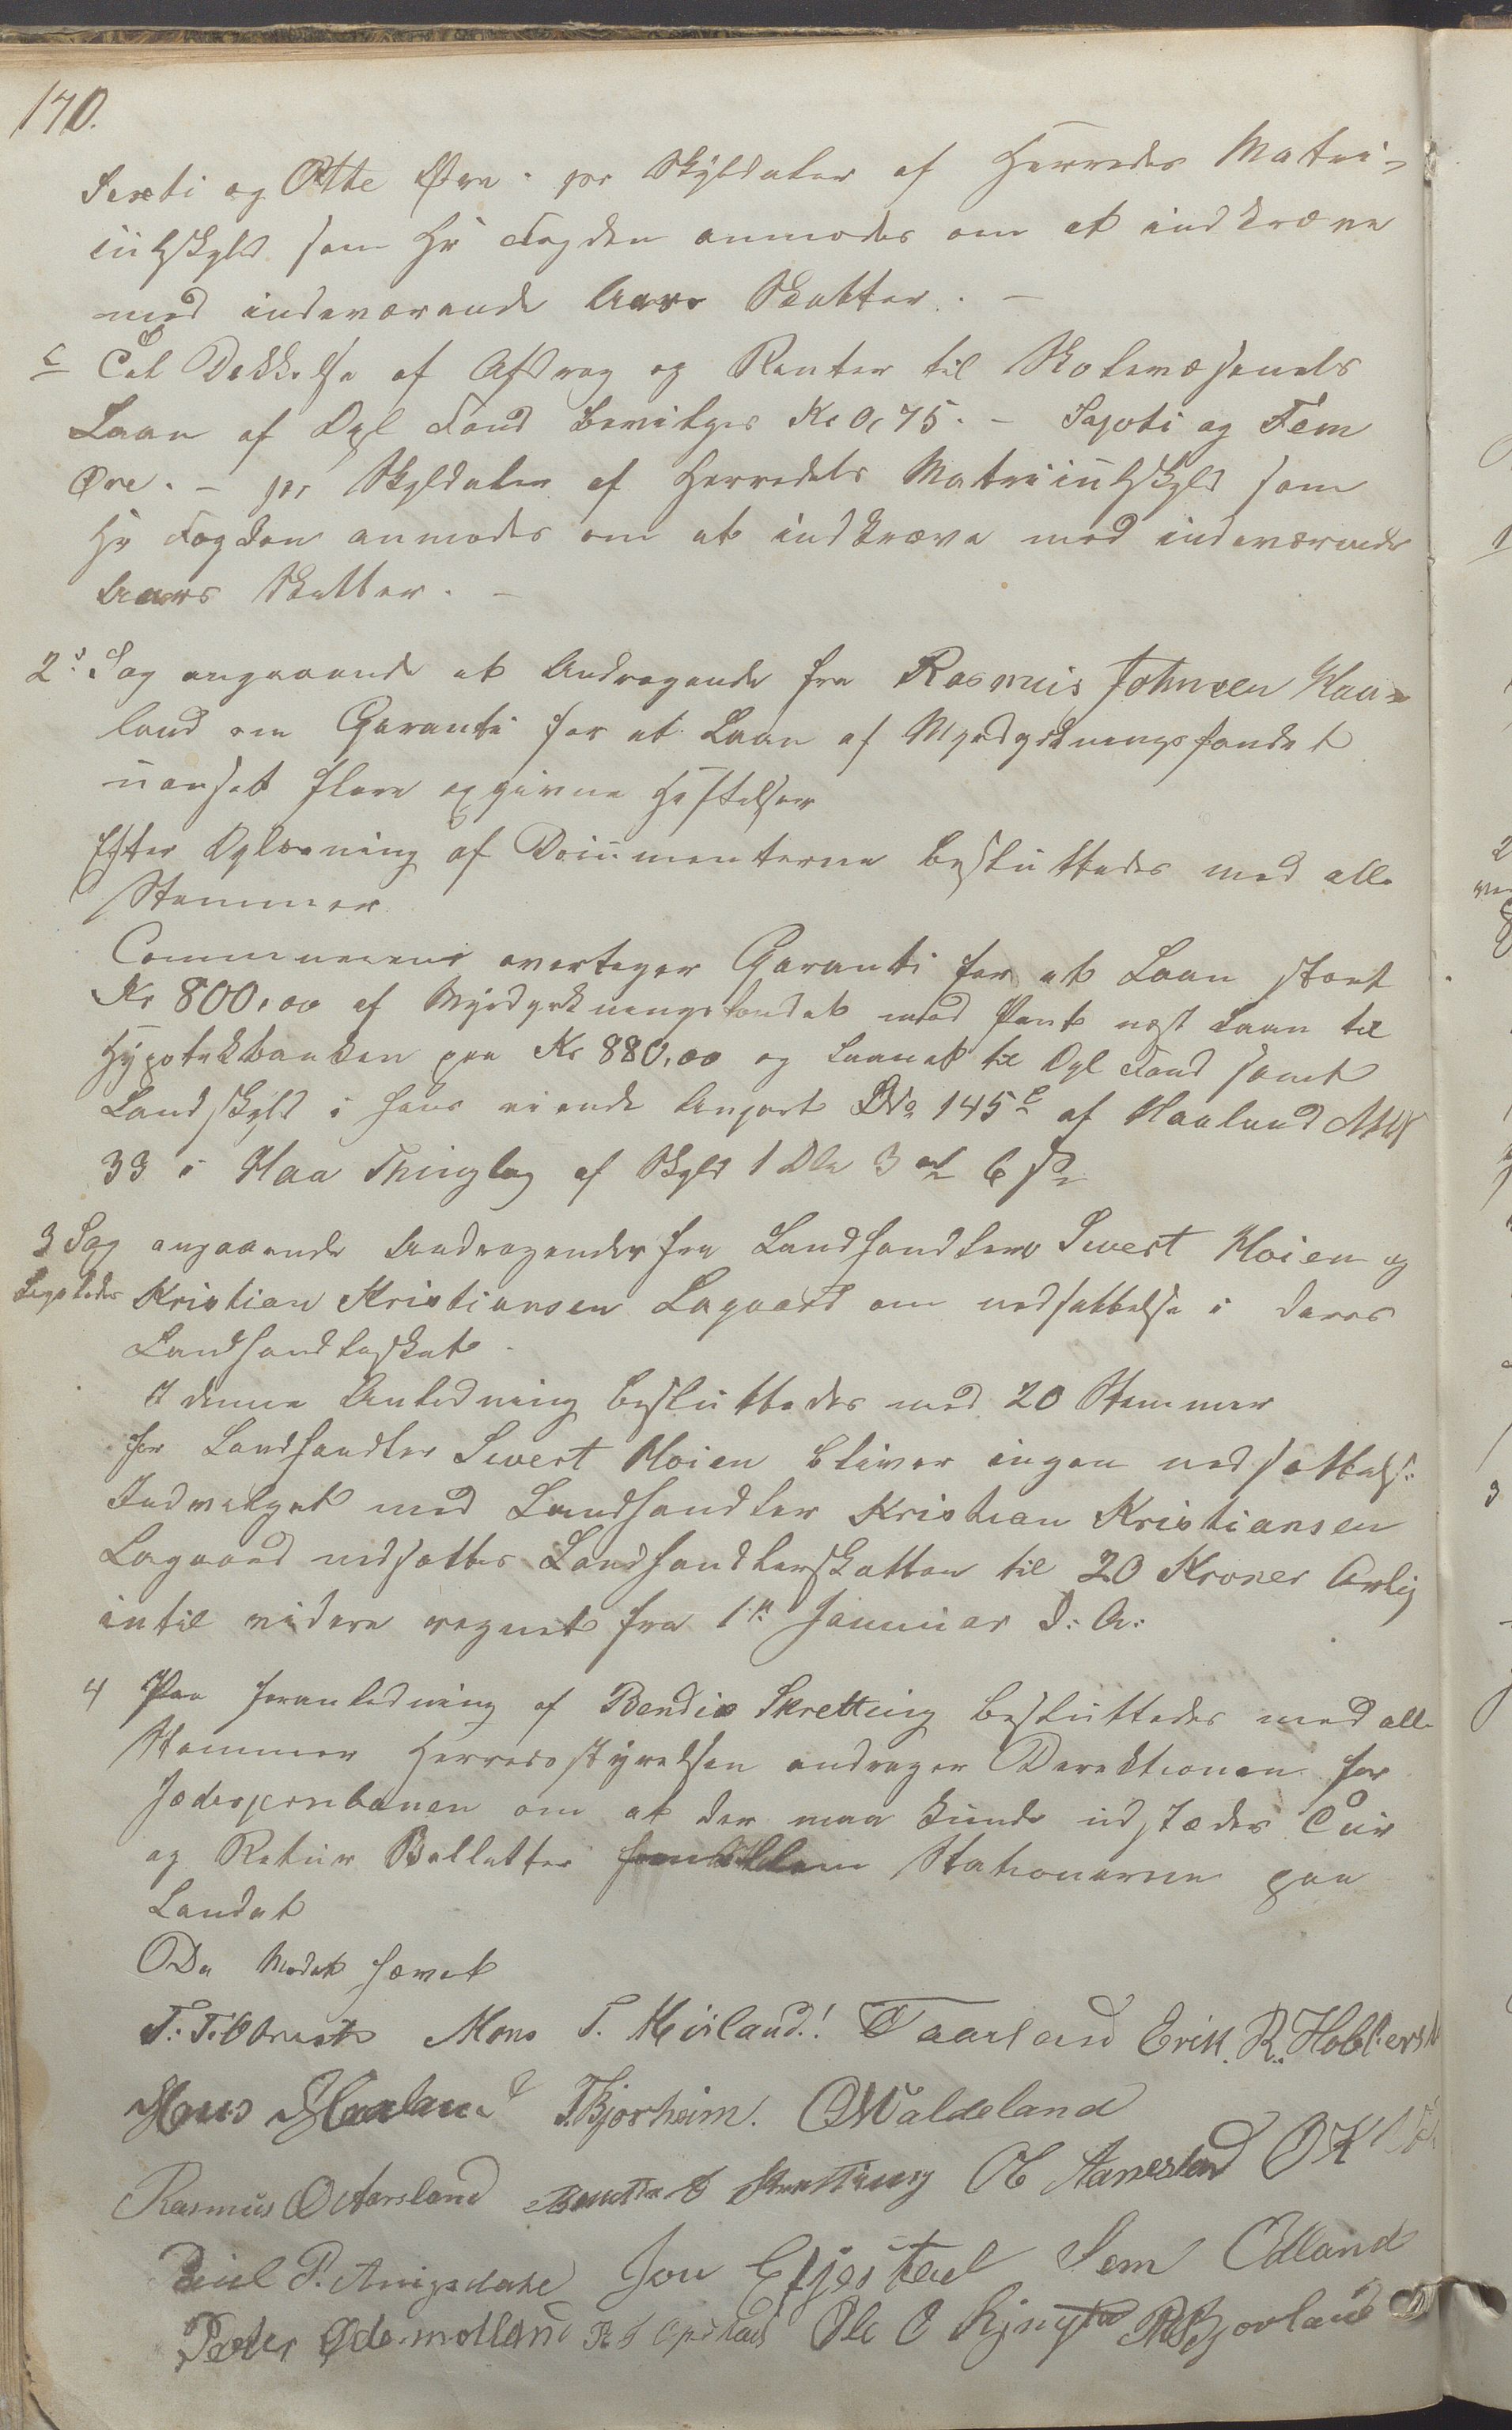 170.
Sexti og Otte Øre. pr Skyldaler af Herredes Matri-
kulskyld som Hr Fogden anmodes om at indkræve
med indeværende Aars Skatter. —
c Til Dækkelse af Afdrag og Renter til Skolevæsenets
Laan af Opl Fond bevilges Kr 0,75. — Sysoti og Fem
Øre. — pr Skyldaler af Herredets Matrikulskyld som
Hr Fogden anmodes om at indkræve med indeværende
Aars Skatter. —
2. Sag angaaende et Andragende fra Rasmus Johnsen Haa-
land om Garanti for et Laan af Myrdyrkningsfondet
uanset flere opgivne Heftelser
Efter Oplæsning af Dokumenterne besluttedes med alle
Stemmer
Communen overtager Garanti for et Laan stort
Kr 800,00 af Myrdyrkningsfondet med Pant næst Laan til
Hypotekbanken paa Kr 880,00 og Laanet til Opl Fond samt
Landskyld i hans eiende Anpart LNo 145 c af Haaland MNr
33 i Haa Thinglag af Skyld 1 Dlr 3 ort 6 s
3 Sag angaaende Andragender fra Landhandlere Sivert Moien og
Ligeledes Kristian Kristiansen Lagaard om nedsættelse i deres
Landhandleskat.
I denne Anledning besluttedes med 20 Stemmer
for Landhandler Sivert Moien bliver ingen nedsættelse
Indvilget med Landhandler Kristian Kristiansen
Lagaard nedsættes Landhandlerskatten til 20 Kroner Aarlig
intil videre regnet fra 1ste Januar d: A:
4 Paa foranledning af Bendix Skretting besluttedes med alle
Stemmer Herredsstyrelsen andrager Direktionen for
Jæderjernbanen om at der maa kunde udstædes Tur
og Retur Balletter Stationerne paa
Landet
Da Mødet hævet
Mons T. Miland! T Aarland Erik. R.
Hans Haaland T. Bjorheim. O Waldeland
Rasmus O Aarsland Bendix Skretting Ob Aanestad O K
Paul P. Anigsdale Jon Efjestad Sem Edland
Peder Ødemotland Ole O R Bjorland